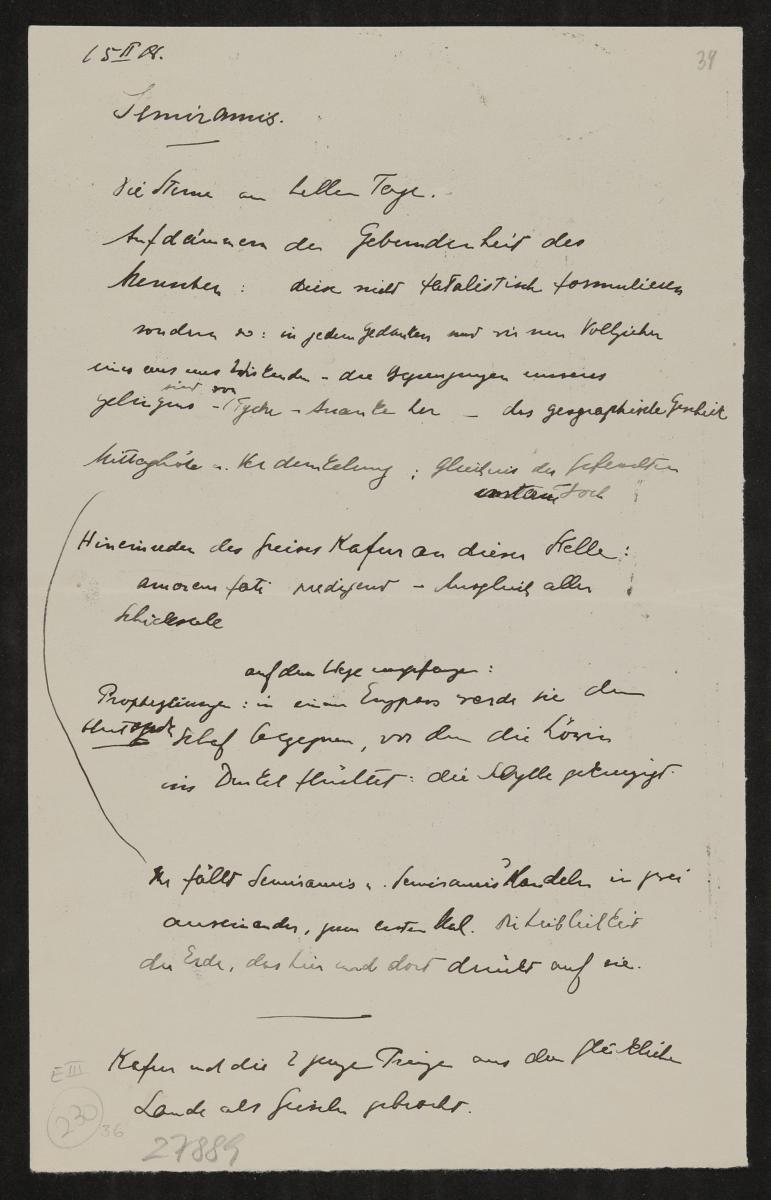 15 II 08.
39
Semiramis.
Die Sterne am hellen Tage.
Aufdämmern der Gebundenheit des
Menschen: diese nicht fatalistisch formulieren
sondern so: in jedem Gedanken sind wir nur Vollzieher
eines aus uns Wirkenden – die Begegnungen unseres
sind von
gelingens – Tyche – Ananke her – das geographische Geschick
Mittaghöhe u. Verdunkelung: Gleichnis der Gefesselten
Joch
Hineinreden des Greises Kafur an dieser Stelle:
amorem fati predigend – Ausgleich aller
Schicksale
auf dem Wege empfangen:
Prophezeiungen: in einem Engpass werde sie dem
Schaf begegnen, vor dem die Löwin
ins Dunkel flüchtet: die Idylle
Ihr fällt Semiramis u. Semiramis' Handeln in zwei
auseinander, zum ersten Mal. Die Leiblichkeit
der Erde, das hier und dort drückt auf sie.
Kafur und die 2 junge Prinzen aus dem glücklichen
Lande als Geiseln gebracht.
E III
230
36
27889